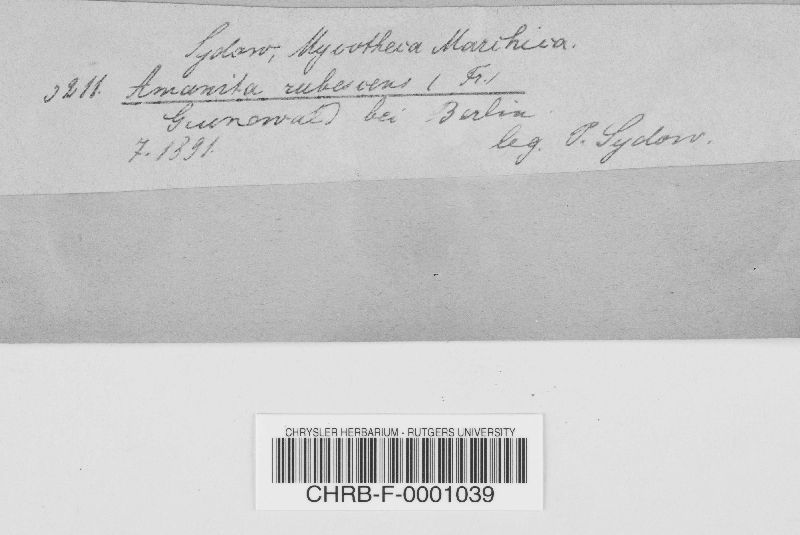 Sydow, Mycotheca Marchica.
3211. Amanita rubescens (Fr.)
Grunewald bei Berlin.
7. 1891.
leg. P. Sydow.
CHRYSLER HERBARIUM - RUTGERS UNIVERSITY
CHRB-F-0001039